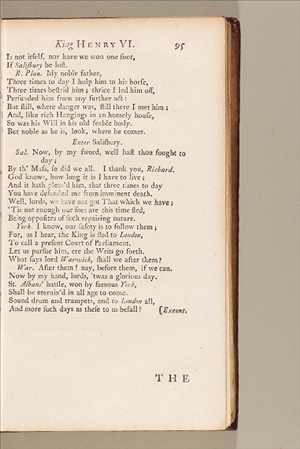 King HENRY VI. 95
Is not itself, nor have we won one foot,
If Saliſbury be loſt.
R. Plan. My noble father,
Three times to day I holp him to his horſe,
Three times beſtrid him; thrice I led him off,
Perſuaded him from any further act:
But ſtill, where danger was, ſtill there I met him;
And, like rich Hangings in an homely houſe,
So was his Will in his old feeble body.
But noble as he is, look, where he comes.
Enter Salisbury.
Sal. Now, by my ſword, well haſt thou fought to
day;
By th' Maſs, ſo did we all. I thank you, Richard.
God knows, how long it is I have to live;
And it hath pleas'd him, that three times to day
You have defended me from imminent death.
Well, lords, we have not got That which we have;
'Tis not enough our foes are this time fled,
Being oppoſites of ſuch repairing nature.
York. I know, our ſafety is to follow them;
For, as I hear, the King is fled to London,
To call a preſent Court of Parliament.
Let us purſue him, ere the Writs go forth.
What ſays lord Warwick, ſhall we after them?
War. After them! nay, before them, if we can.
Now by my hand, lords, 'twas a glorious day.
St. Albans' battle, won by famous York,
Shall be eterniz'd in all age to come.
Sound drum and trumpets, and to London all,
And more ſuch days as theſe to us befall! [Exeunt.
THE